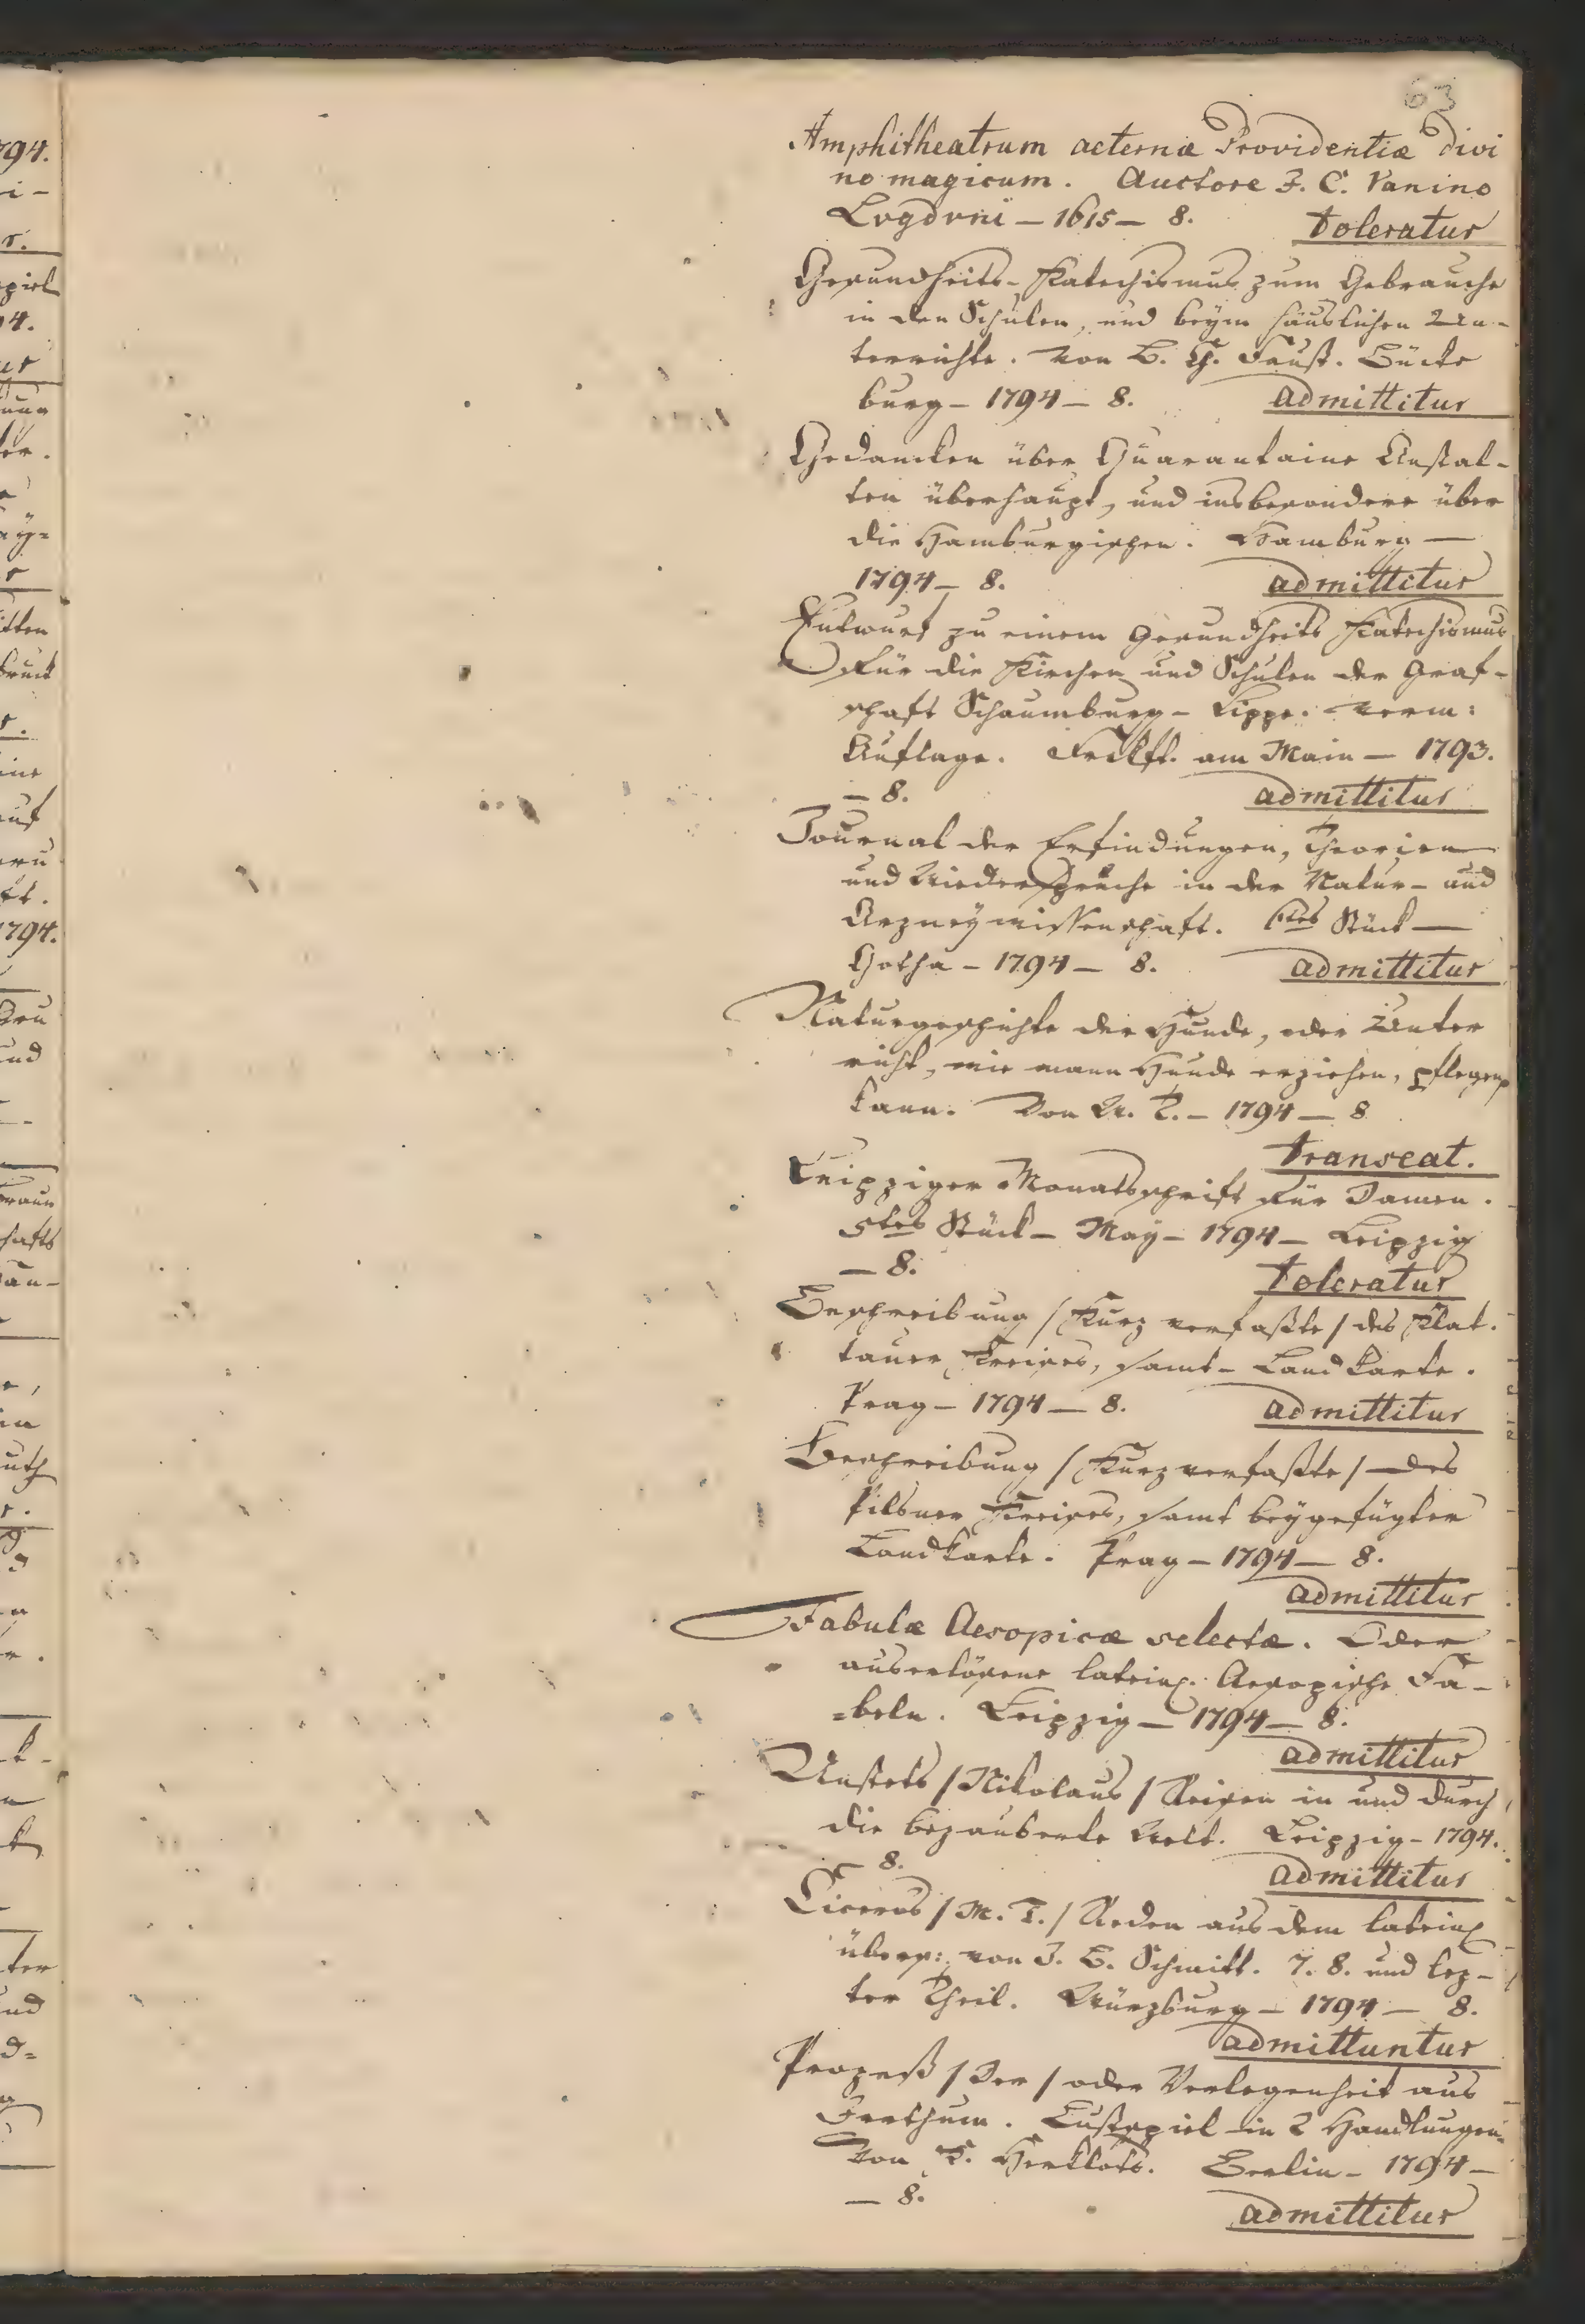 63
Amphitheatrum aeternæ Providentiæ divi
no magicum. Auctore J. C. Vanino
Lugduni — 1615 — 8. toleratur
Gesundheits-Katechismus zum Gebrauche
in den Schulen, und beym häuslichen Un-
terrichte. von B. Ch. Faust. Bücke
burg — 1794 — 8. admittitur
Gedancken über Quarantaine Anstal-
ten überhaupt, und insbesondere über
die Hamburgischen. Hamburg —
1794 — 8. admittitur
Entwurf zu einem Gesundheits Katechismus
für die Kirchen und Schulen der Graf-
schaft Schaumburg-Lippe. verm:
Auflage. Frckft. am Main — 1793.
— 8. admittitur
Journal der Erfindungen, Theorien
und Wiedersprüche in der Natur- und
Arzneywissenschaft. 6tes Stück —
Gotha — 1794 — 8. admittitur
Naturgeschichte der Hunde, oder Unter
richt, wie mann Hunde erziehen, pflegen
kann. Von — 1794 — 8
transeat.
Leipziger Monatsschrift für Damen.
5tes Stück — May — 1794 — Leipzig
— 8. toleratur
Beschreibung / Kurz verfaßte / des Klat.
tauer Kreises, samt Landkarte.
Prag — 1794 — 8. admittitur
Beschreibung / Kurz verfaßte / des
Pilsner Kreises, samt beygefügter
Landkarte. Prag — 1794 — 8.
admittitur
Fabulæ Aesopicæ selectæ. Oder
auserlösene latein. Aesopische Fa-
=beln. Leipzig — 1794 — 8.
admittitur
/ Nikolaus / Reisen in und durch
die bezauberte Welt. Leipzig — 1794.
— 8. admittitur
Ciceros / M. T. / Reden aus dem latein
übers: von J. B. Schmitt. 7. 8. und lez-
ter Theil. Würzburg — 1794 — 8.
admittuntur
Prozeß / Der / oder Verlegenheit aus
Irrthum. Lustspiel in 2 Handlungen.
Von C. Herklots. Berlin — 1794 —
— 8.
admittitur